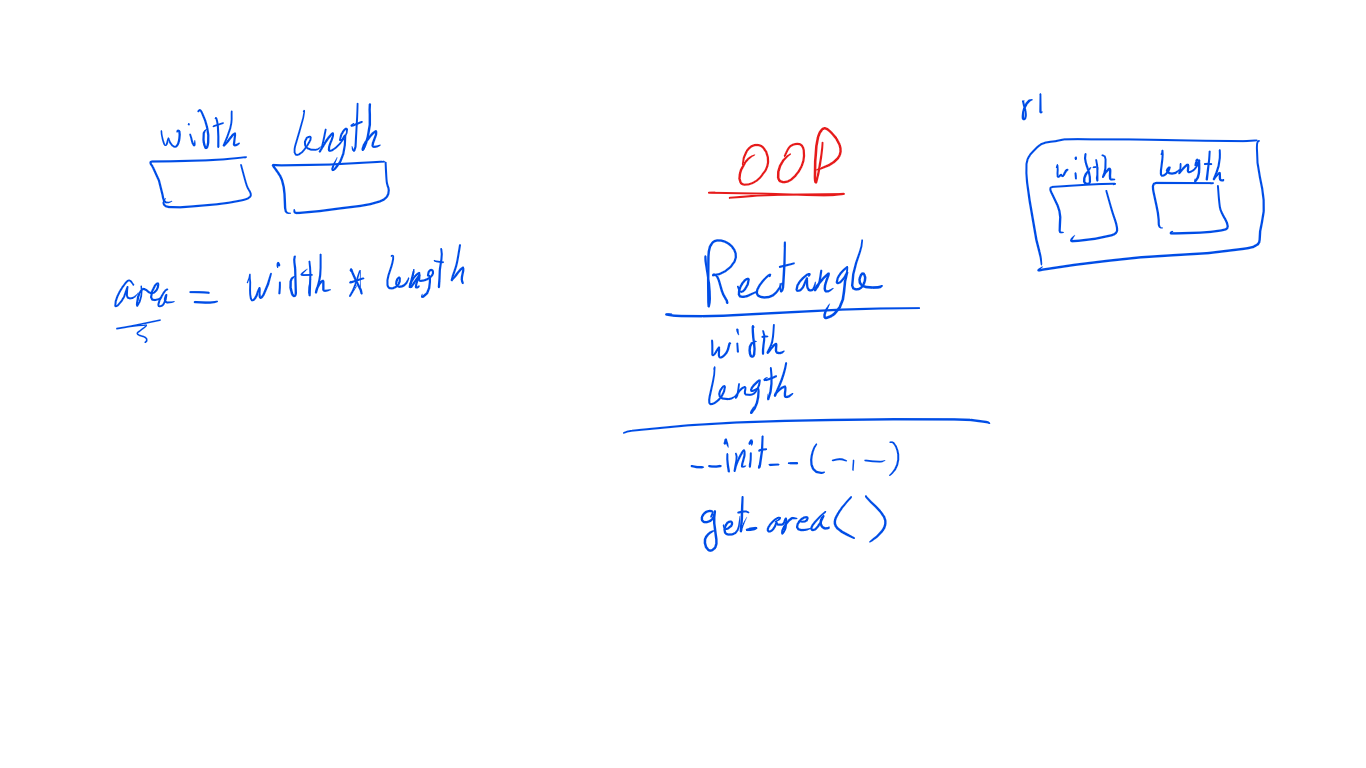 width length
area = width * length
OOP
Rectangle
width
length
--init--(-,-)
get-area()
r1
width length